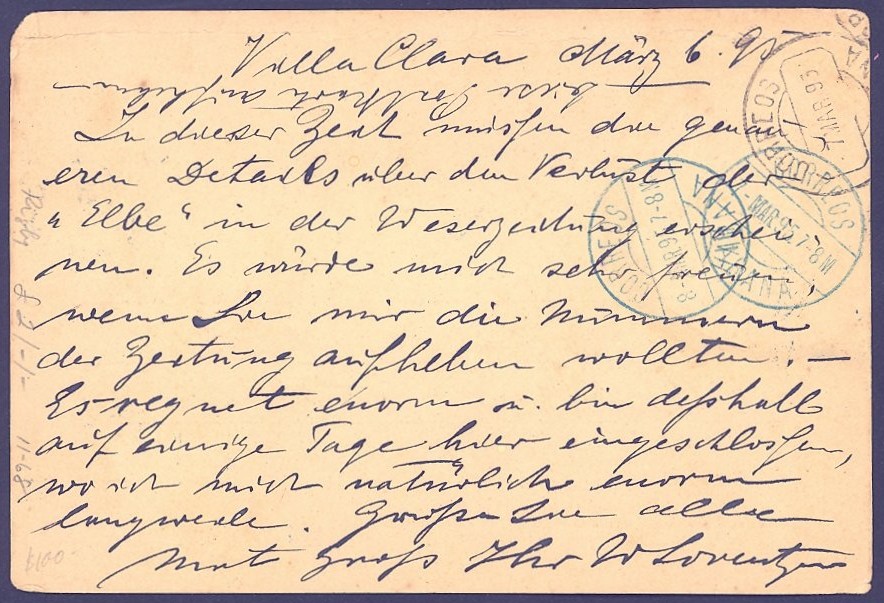 Villa Clara März 6. 95
bitte Postkarte aufheben
In dieser Zeit müssen die genau
eren Details über den Verlust der
"Elbe" in der Weserzeitung erschei
nen. Es würde mich sehr freuen,
wenn Sie mir die Nummern
der Zeitung aufheben wollten. —
Es regnet enorm u. bin deßhalb
auf einige Tage hier eingeschloßen,
wo ich mich natürlich enorm
langweile. Grüßen Sie alle
Mit Gruß Ihr W Lorentzen
CORREOS
7 MAR 95
CORREOS
MAR 95 7-8M
HABANA
CORREOS
HABANA
£2/-/-
11-68
£100